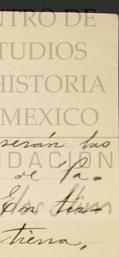 NTRO DE
TUDIOS
HISTORIA
MEXICO
serán las
NDACION
de Pa-
En tie-
tierra,